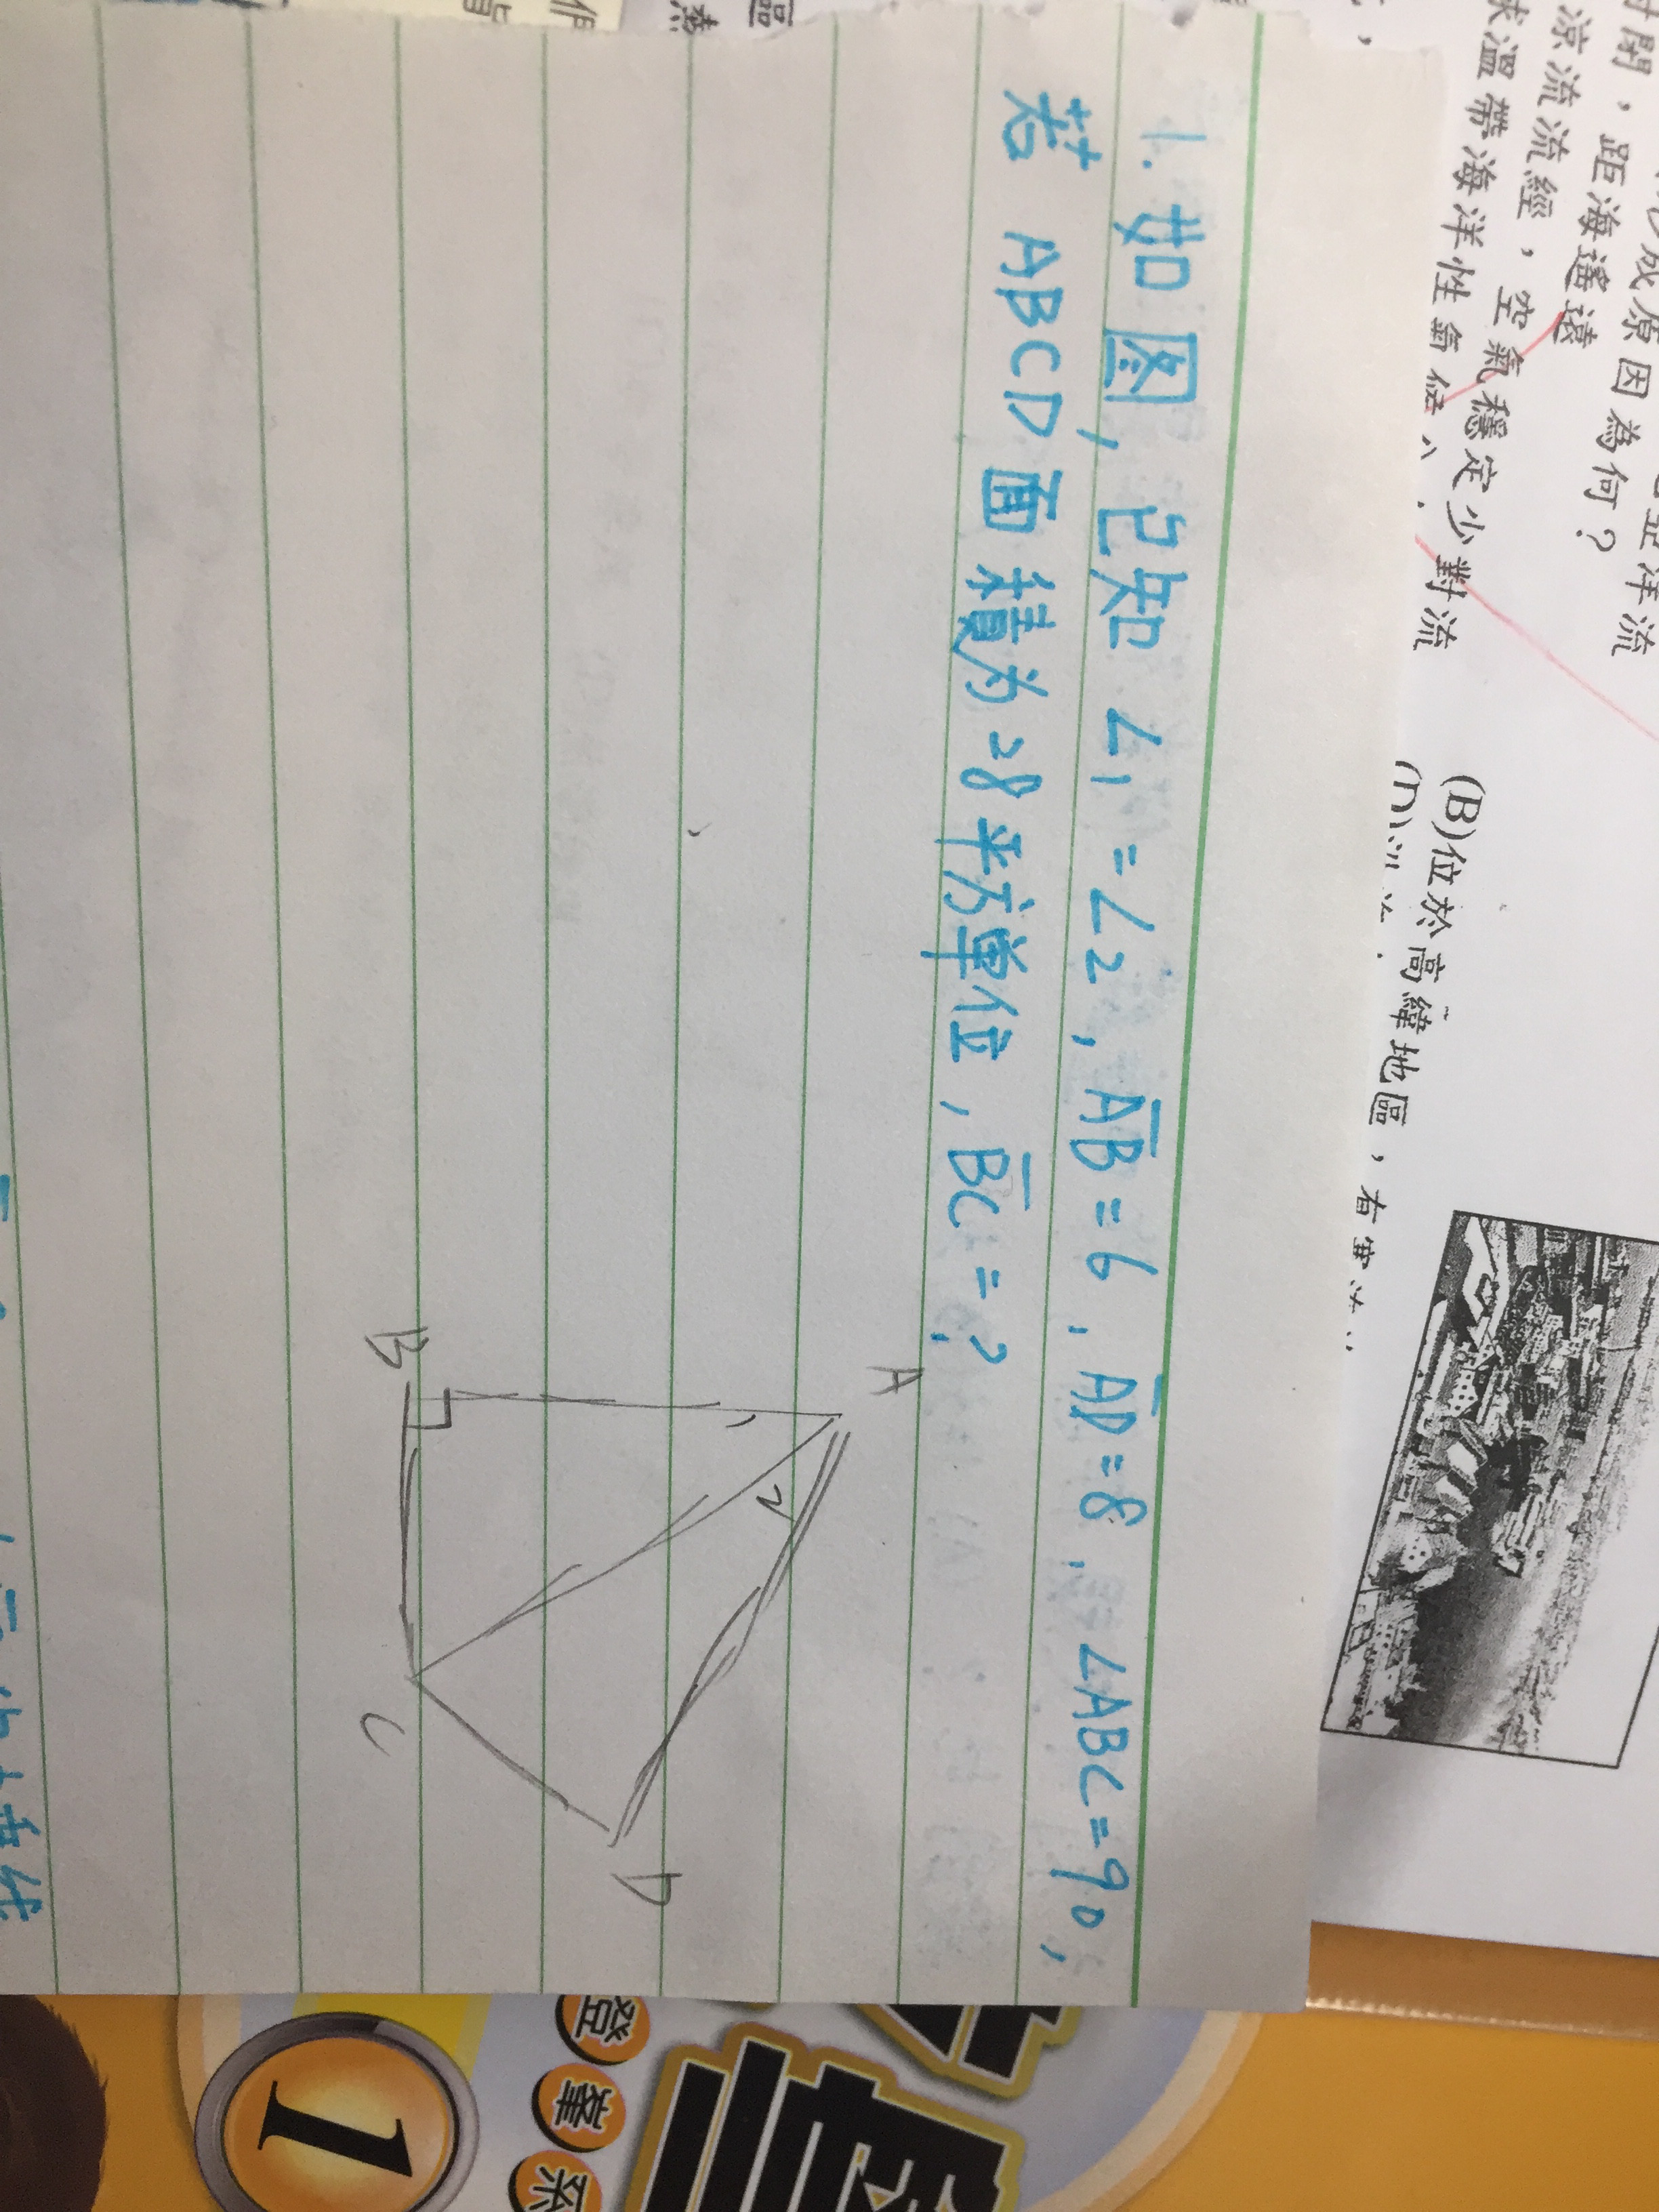 1. 如图, 已知 ∠1=∠2, AB=6, AD=8, ∠ABC=90,
若 ABCD 面積为28平方单位, BC=?
A
B
C
D
1
2
成原因為何?
,距海遙遠
涼流流經,空氣穩定少對流
溫帶海洋性氣
(B)位於高緯地區,
(D)
登峯系
1